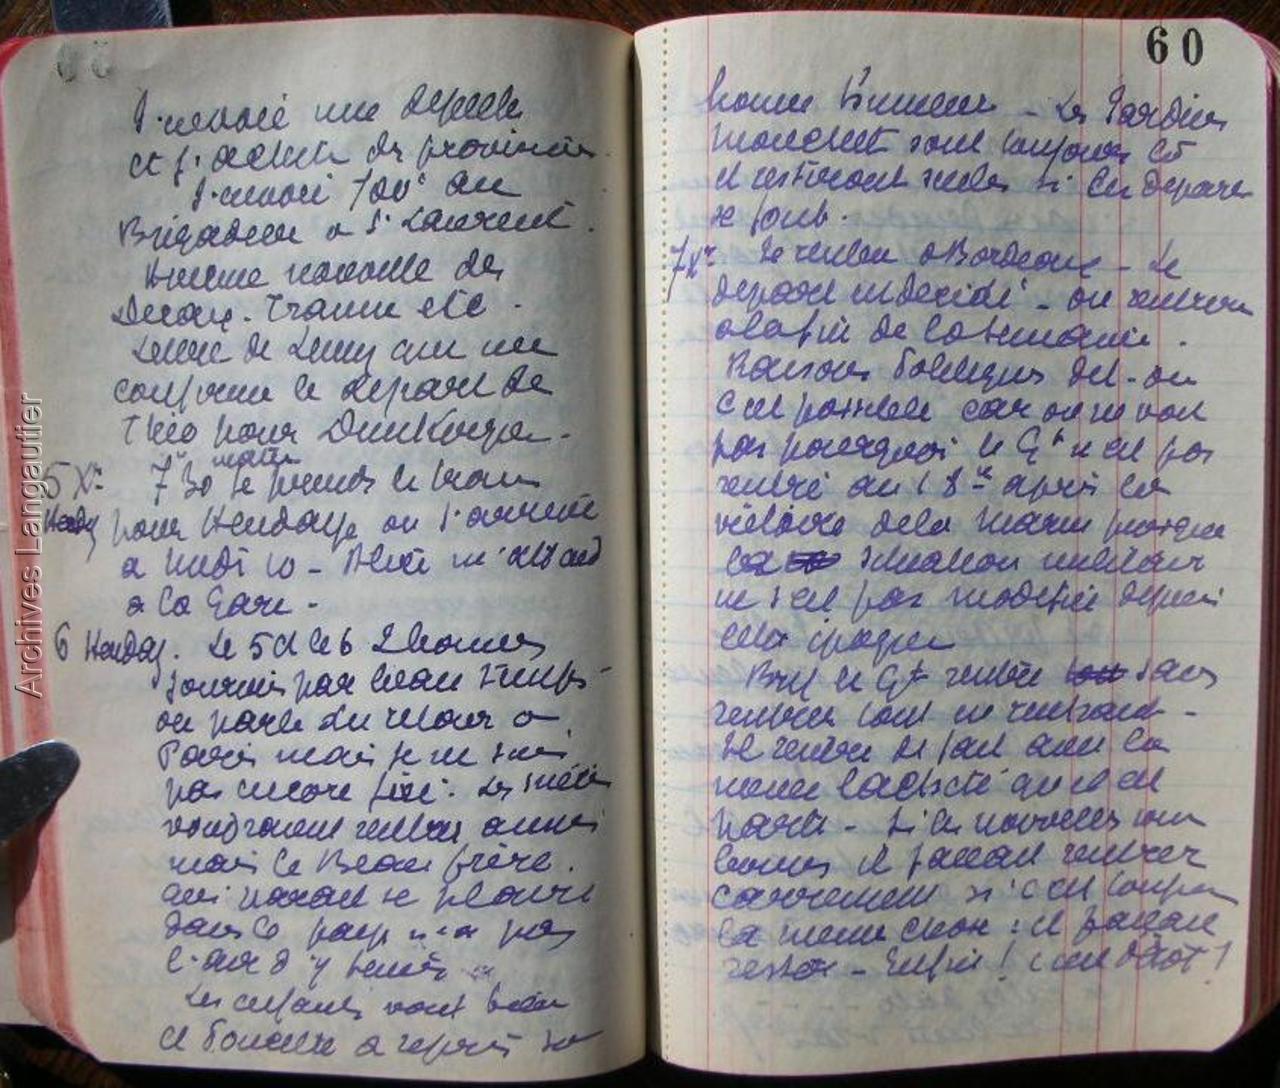 J'envoie une depeche
et j'achete des provisions.
J'envoi 100f au
Brigadier a St Laurent.
Aucune nouvelle des
Decaix. Tranin etc.
Lettre de Lemy qui me
confirme le depart de
Théo pour Dunkerque.
5 Xre 7h30 matin je prends le train
Henday pour Hendaye ou j'arrive
a midi 10 - m'attend
a la Gare -
6 Henday. Le 5 et le 6 2 bonnes
journées par beau temps -
on parle du retour a
Paris mais je ne suis
pas encore fixé. Les
voudraient rentrer aussi
mais le Beau frère.
qui parait se plaire
dans le pays n'a pas
l'air d'y tenir
Les enfants vont bien
et a repris sa
60
bonne humeur - Les Jardins
sont toujours là
et resteront seules si les departs
se font -
7 Xre Je rentre a Bordeaux - Le
depart indecidé - on rentrera
a la fin de la semaine.
Raisons Politiques dit-on
C'est possible car on ne voit
pas pourquoi le Gt n'est pas
rentré au 18 Xre après la
victoire de la Marne puisque
la situation militaire
ne s'est pas modifiée depuis
cette époque
Bref le Gt rentre sans
rentrer tout en rentrant -
Il rentre de fait avec la
meme lacheté qu'il est
parti - Si les nouvelles sont
bonnes il fallait rentrer
carrement si c'est toujours
la meme chose : il fallait
rester - Enfin ! c'est idiot !
Archives Langautier